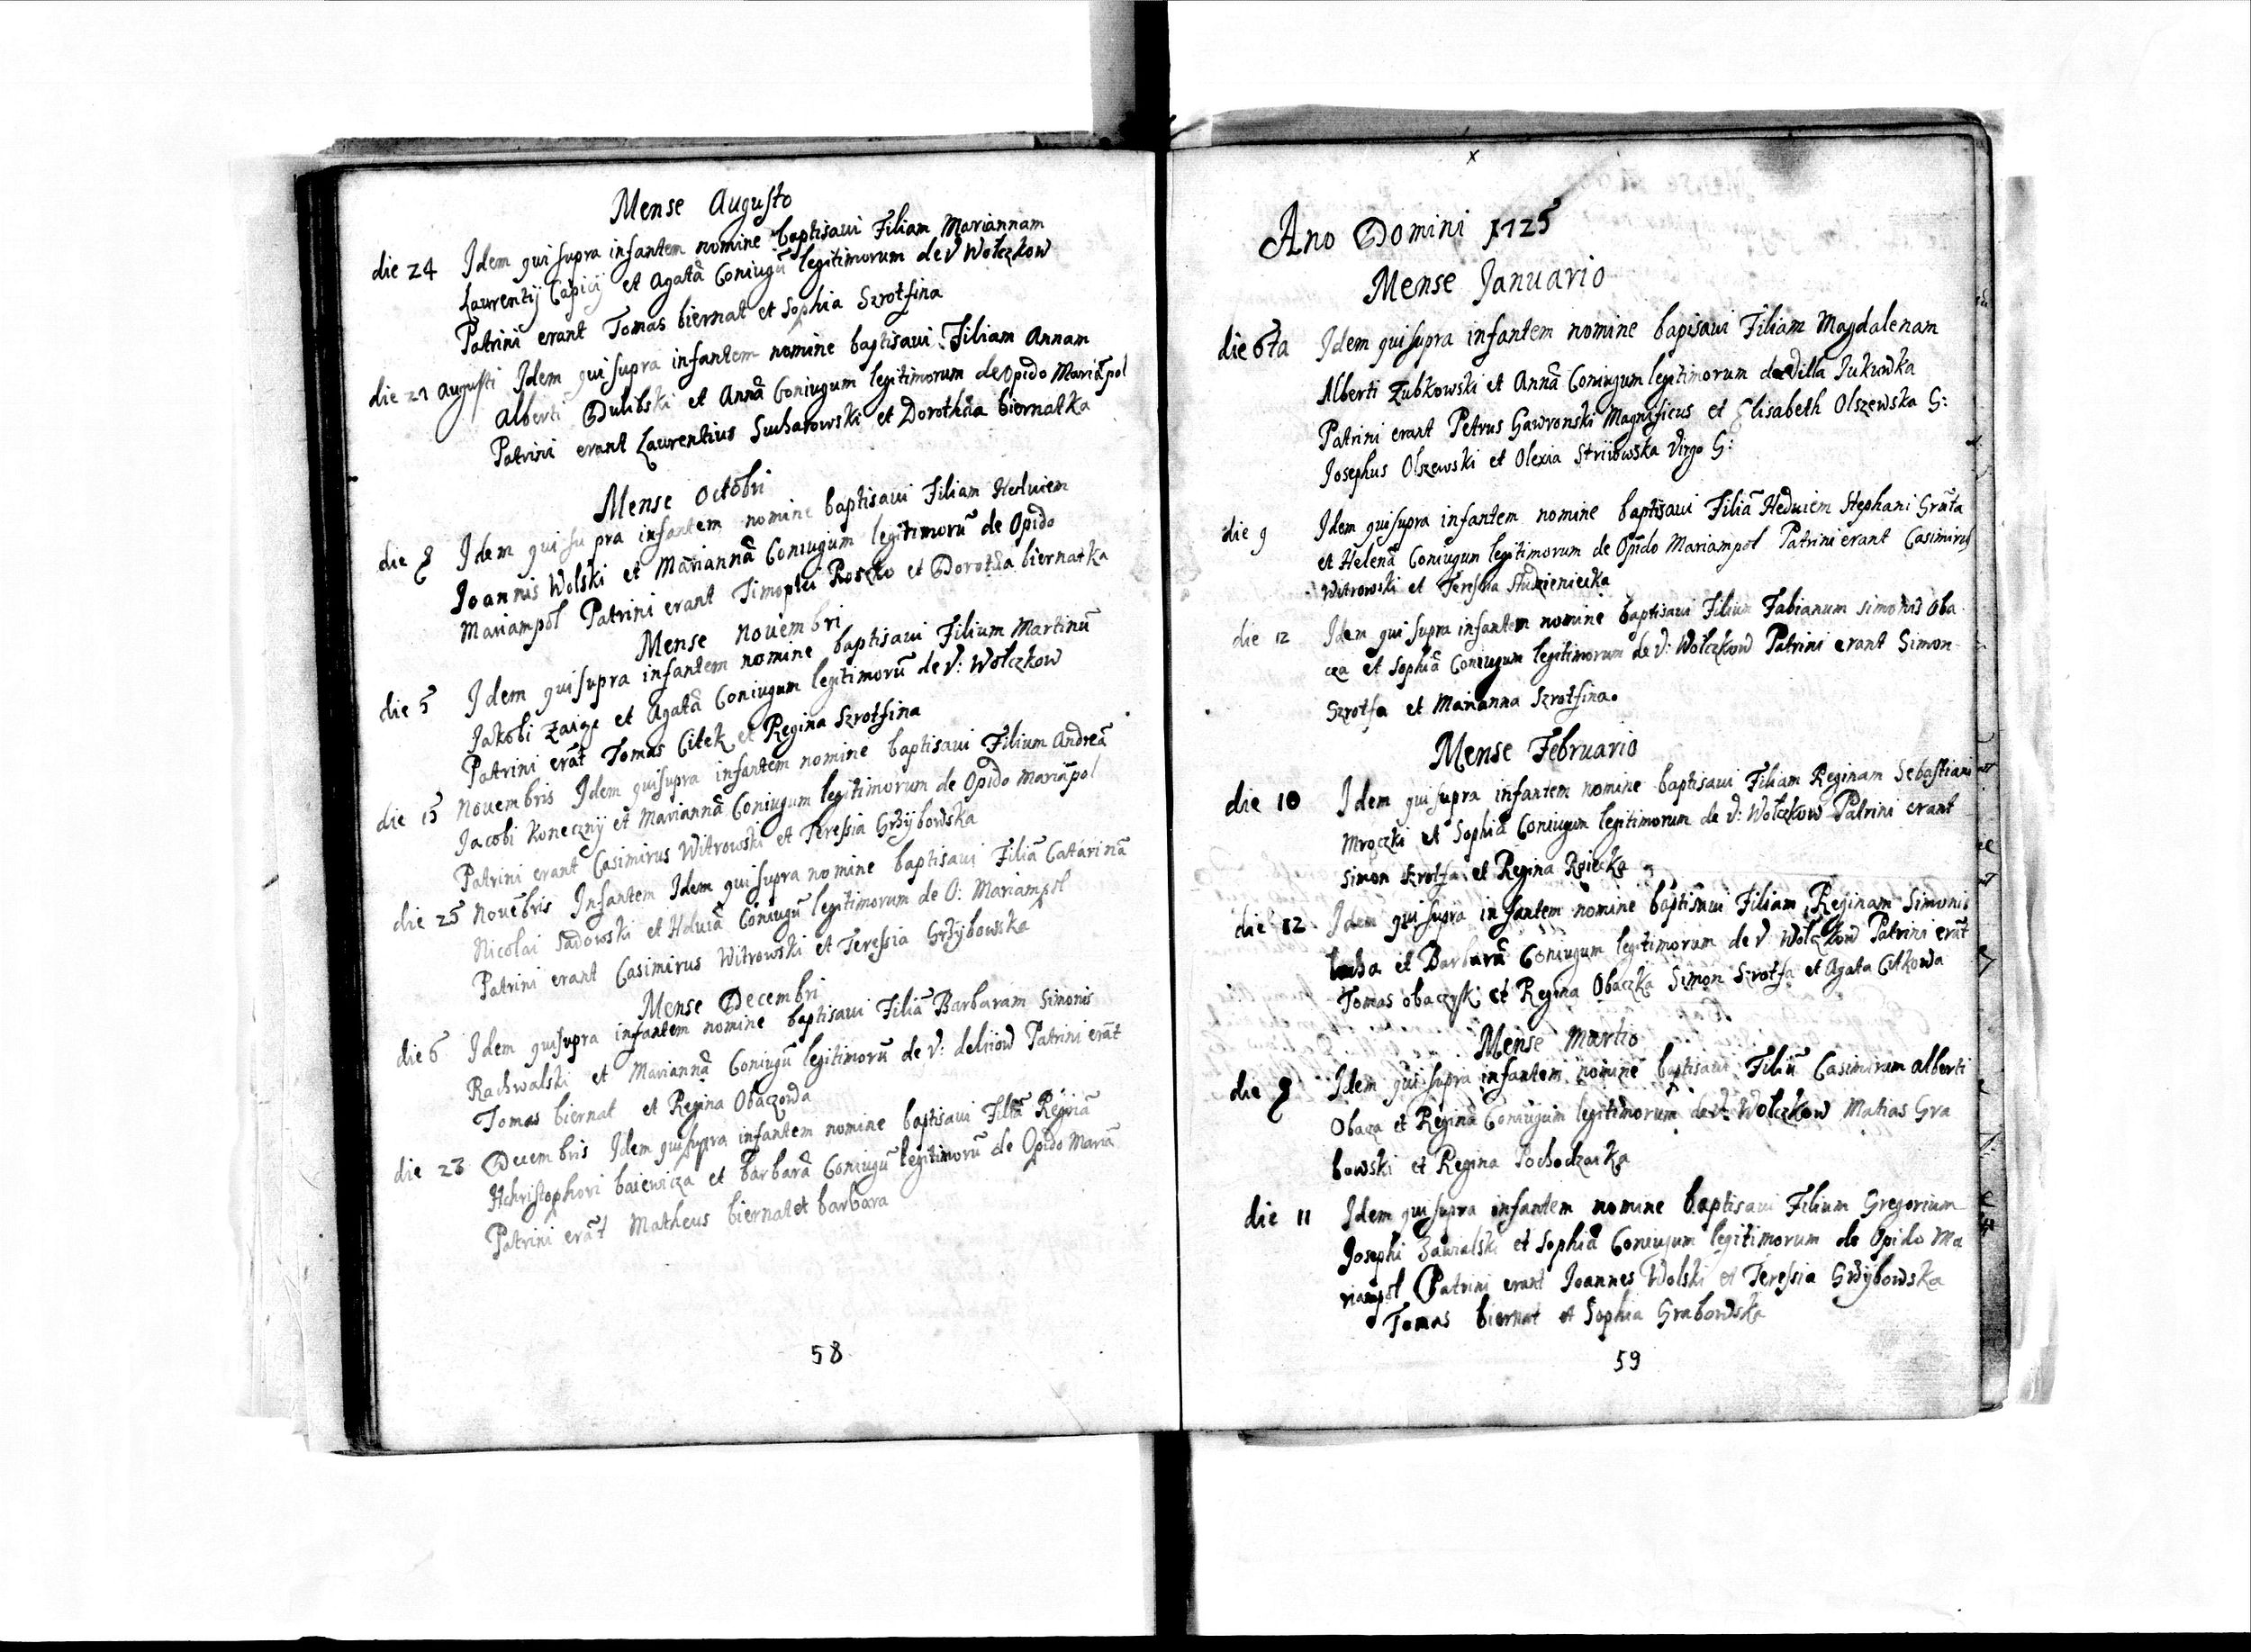 Mense Augusto
die 24 Idem qui supra infantem nomine baptisavi Filiam Mariannam
Laurentij Capicij et Agatã Coniugũ legitimorum de V Wołczkow
Patrini erant Tomas biernat et Sophia Szrotsina
die 27 Augusti Idem qui supra infantem nomine baptisavi Filiam Annam
Alberti Dulibski et Annã Coniugum legitimorum de Opido Mariãpol
Patrini erant Laurentius Sucharowski et Dorothea biernatka
Mense Octobri
die 8 Idem qui supra infantem nomine baptisavi Filiam Heduiem
Joannis Wolski et Mariannã Coniugum legitimorũ de Opido
Mariampol Patrini erant Roszko et Dorothea biernatka
Mense Nouembri
die 5 Idem qui supra infantem nomine baptisaui Filium Martinũ
Jakobi et Agatã Coniugum legitimorũ de V: Wołczkow
Patrini erãt Tomas Citek et Regina Szrotsina
die 15 Nouembris Idem qui supra infantem nomine baptisaui Filium Andreã
Jacobi Konecznij et Mariannã Coniugum legitimorum de Opido Mariãpol
Patrini erant Casimirus Witrowski et Teressia Grzybowska
die 25 Nouẽbris Infantem Idem qui supra nomine baptisaui Filiã Catarinã
Nicolai Sadowski et Hduiã Coniugũ legitimorum de O: Mariampol
Patrini erant Casimirus Witrowski et Teressia Grzybowska
Mense Decembri
die 6 Idem qui supra infantem nomine baptisaui Filiã Barbaram Simonis
Rachwalski et Mariannã Coniugũ legitimorũ de V: deliiow Patrini erãt
Tomas biernat et Regina Obaczowa
die 28 Decembris Idem qui supra infantem nomine baptisaui Filiã Reginã
Hchristophori baiewicza et barbarã Coniugũ legitimorũ de Opido Mariã
Patrini erãt Matheus biernat et barbara
58
x
Ano Domini 1725
Mense Januario
die 6ta Idem qui supra infantem nomine bapisaui Filiam Magdalenam
Alberti Zubkowski et Annã Coniugum legitimorum de Villa Jukuwka
Patrini erant Petrus Gawronski Magnificus et Elisabeth Olszewska G:
Josephus Olszewski et Olexia Virgo G:
die 9 Idem qui supra infantem nomine baptisaui Filiã Heduiem Stephani
et Helenã Coniugum legitimorum de Opido Mariampol Patrini erant Casimirus
Witrowski et Teressia Studzieniecka
die 12 Idem qui supra infantem nomine baptisaui Filium Fabianum simonis Oba
cza et Sophiã Coniugum legitimorum de V: Wołczkow Patrini erant Simon
Szrotsa et Marianna Szrotsina.
Mense Februario
die 10 Idem qui supra infantem nomine baptisaui Filiam Reginam Sebastiani
Mroczki et Sophiã Coniugum legitimorum de V: Wołczkow Patrini erant
Simon Szrotsa et Regina
die 12 Idem qui supra infantem nomine baptisaui Filiam Reginam Simonis
et Barbarã Coniugum legitimorum de V Wołczkow Patrini erãt
Tomas obaczyski et Regina Obaczka Simon Szrotsa et Agata Citkowa
Mense Martio
die 8 Idem qui supra infantem nomine baptisaui Filiũ Casimirum alberti
Obacza et Reginã Coniugum legitimorum de V: Wołczkow Matias Gra
bowski et Regina Pochodzaika
die 11 Idem qui supra infantem nomine baptisaui Filium Gregorium
Josephi Zawialski et Sophiã Coniugum legitimorum de Opido Ma
riampol Patrini erant Joannes Wolski et Teressia Grzybowska
Tomas biernat et Sophia Grabowska
59